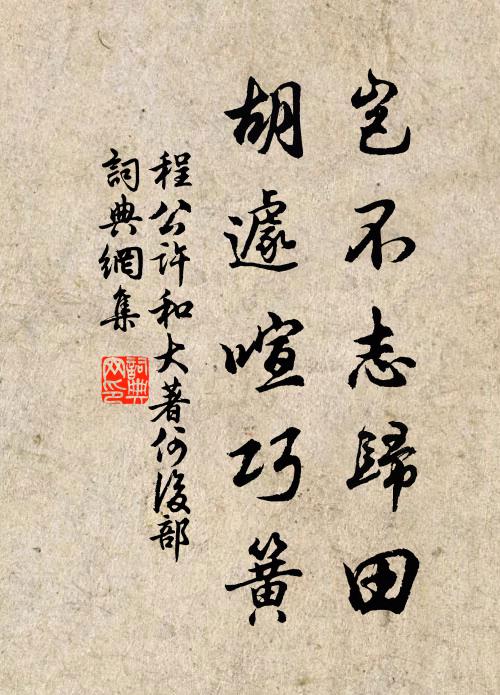 豈不志歸田
胡遽喧巧簧
程公許和大著何浚部
詞典網集
詞典網印